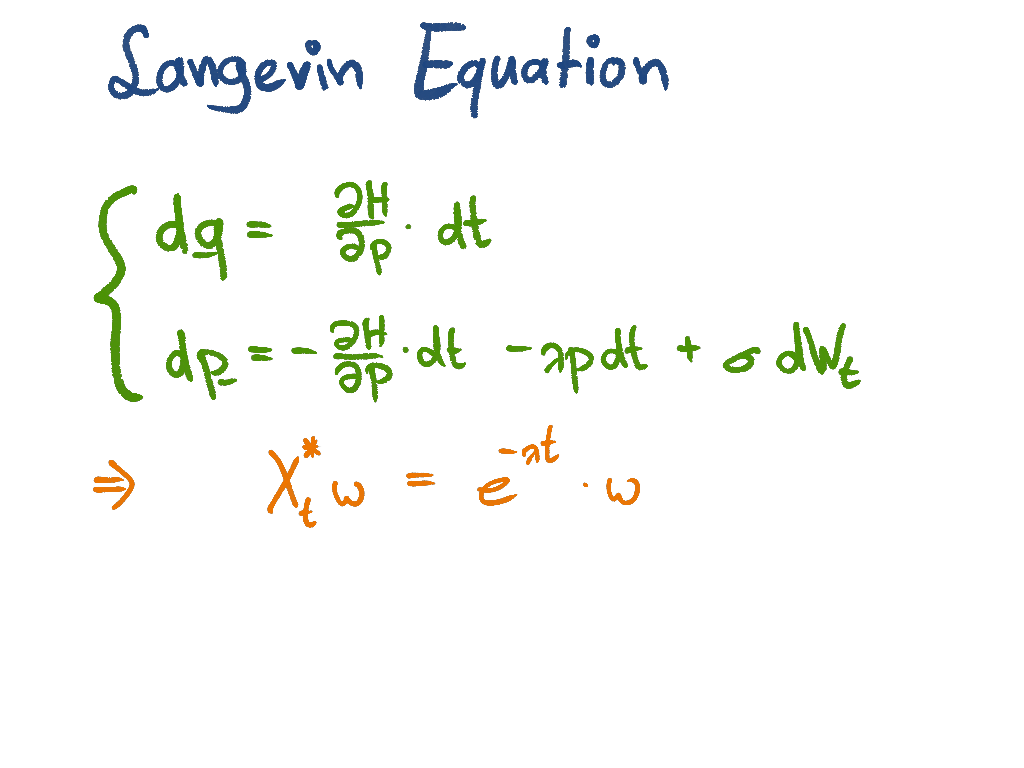 Langevin Equation
dq = ∂H/∂p · dt
dp = - ∂H/∂p · dt - λpdt + σ dWₜ
⇒ Xₜ* ω = e^(-λt) · ω